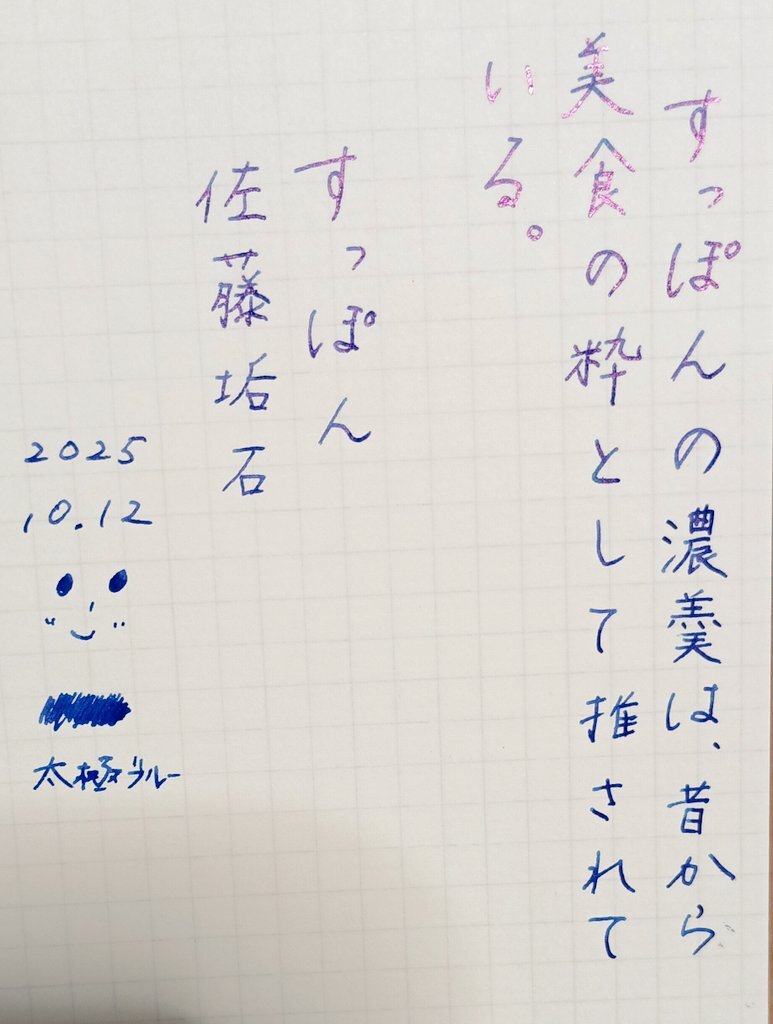 すっぽんの濃羹は、昔から
美食の粋として推されて
いる。
すっぽん
佐藤垢石
2025
10.12
太極ブルー